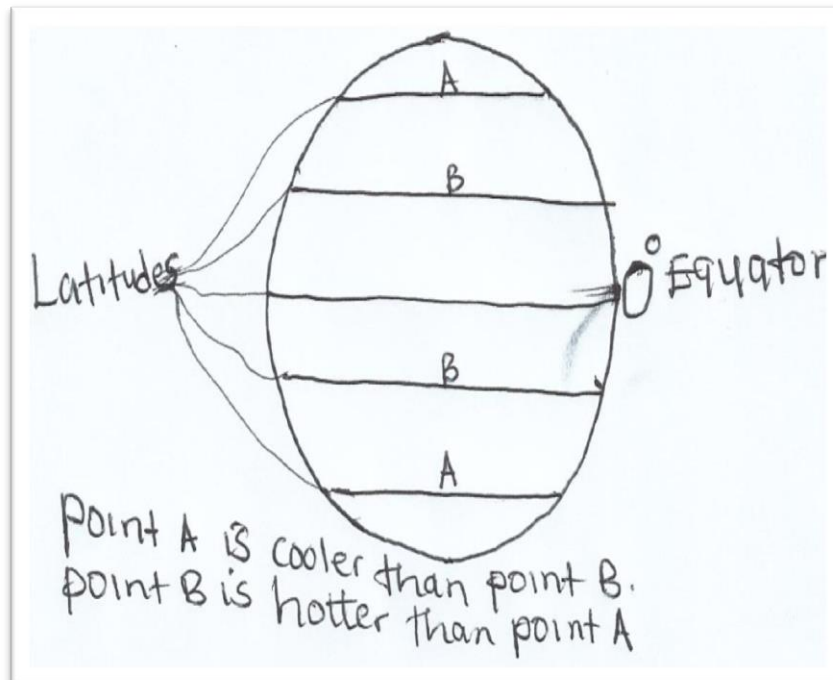 A
B
Latitudes
0° Equator
B
A
point A is cooler than point B.
point B is hotter than point A